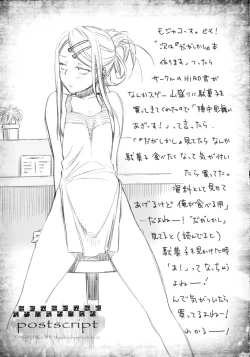 モジャコ・す。ピギ!
次は『だがしかし』本
作ります」っつったら
サークルのHIRO君が
なんかスゲー山盛りに駄菓子を
買ってきてくれたので「陣中見舞い
あざーす!」って言ったら
「『だがしかし』見てたらなんか
駄菓子食べたくなって気が付い
たら買ってた。
資料として見せて
あげるけど俺が食べる用」
…だよねー!『だがしかし』
見てると(読んでると)
駄菓子を見かけた時
「あ!」ってなっちゃう
よねー!
んで気がついたら
買ってるよねー!
わかるー!
postscript